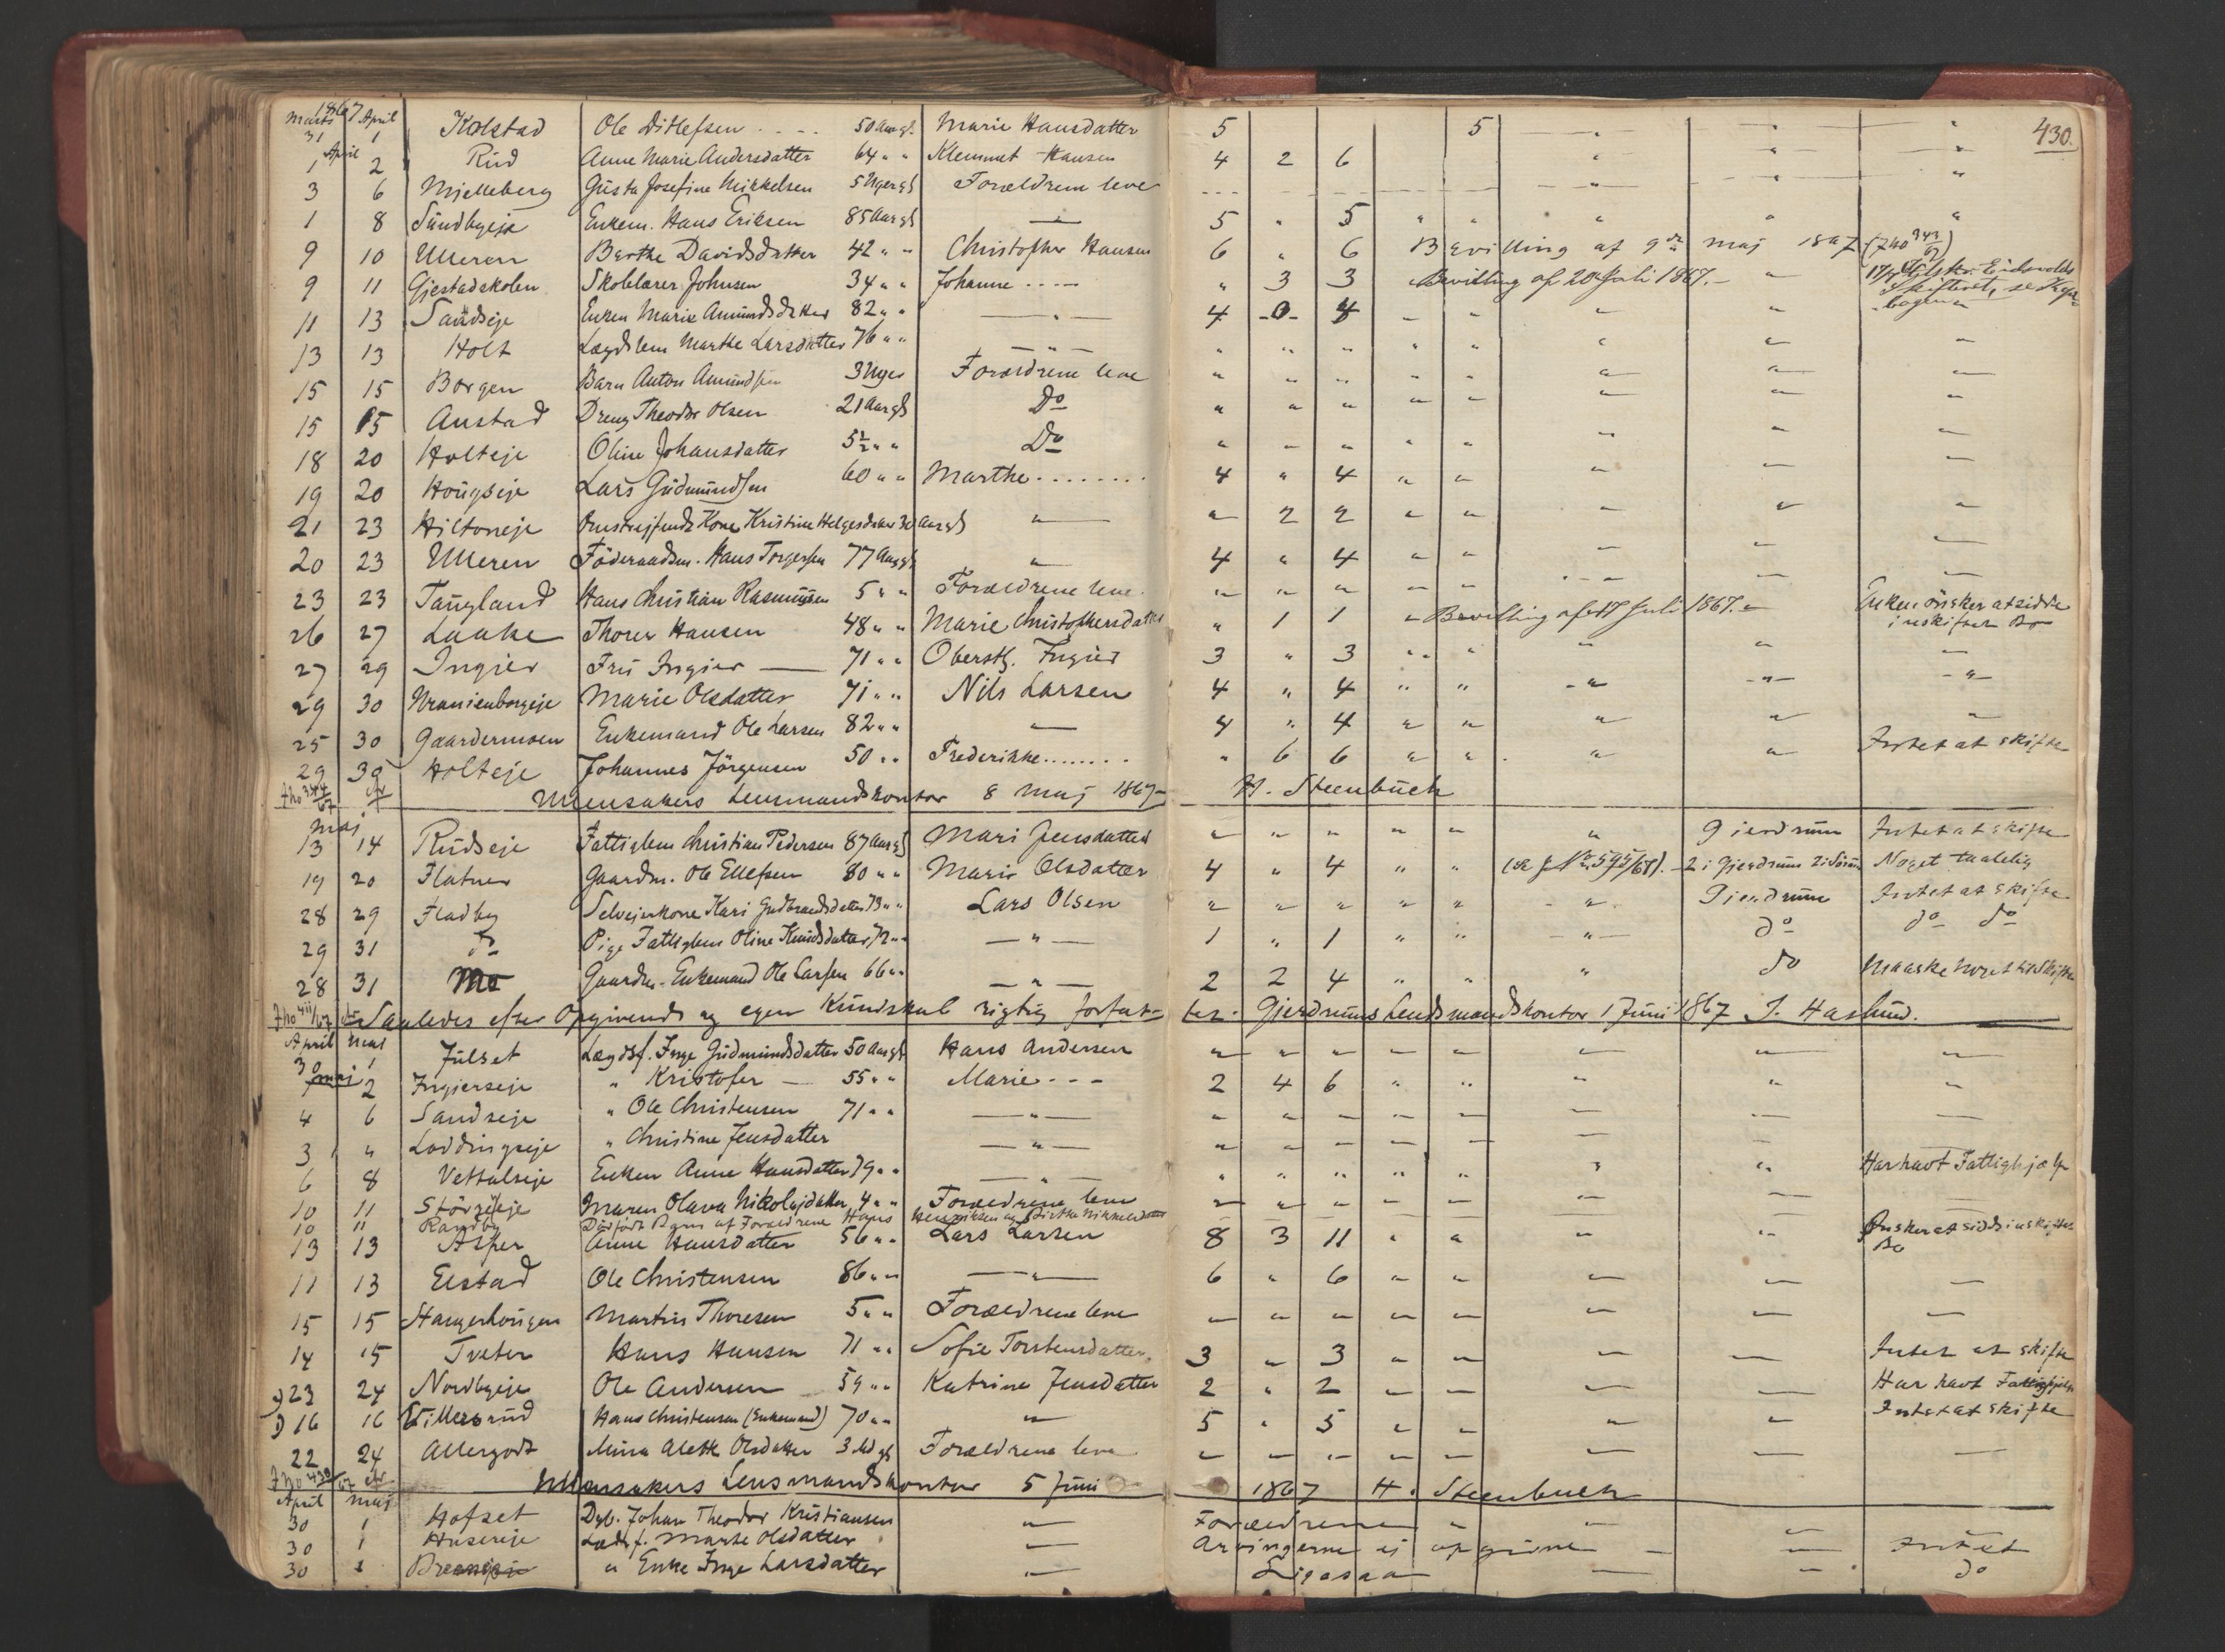 1867
Marts April 430.
31 1 Kolstad Ole Ditlefsen . . . . 50 Aar gl. Marie Hansdatter 5 5 " " "
April
1 2 Rud Anne Marie Andersdatter 64 " " Klemmet Hansen 4 2 6 " " "
3 6 Mjelleberg Gusta Josefine Mikkelsen 5 Uger gl Forældrene leve " " "
1 8 Sundbyeje Enkem. Hans Eriksen 85 Aar gl — 5 " 5 " " " " "
9 10 Ulleren Berthe Davidsdatter 42 " " Christopher Hansen 6 " 6 Bevilling af 9de Maj 1867 (Jno 343/67)
9 11 Gjestadskolen Skolelærer Johnsen 34 " " Johanne . . . . " 3 3 Bevilling af 20 Juli 1867. — " Eidsvolds
11 13 Sandseje Enken Marie Amundsdatter 82 " " — " — 4 - 0 - 4 " " " "
13 13 Holt Lægdslem Marthe Larsdatter 76 " " — " — " " " " " " " "
15 15 Borgen Barn Anton Amundsen 3 Uger Forældrene leve " " " " " " " "
15 15 Austad Dreng Theodor Olsen 21 Aar gl Do " " " " " " " "
18 20 Holteje Oline Johansdatter 5½ " " Do " " " " " " " "
19 20 Hougseje Lars Gudmundsen 60 " " Marthe . . . . . . . . 4 " 4 " " " " "
21 23 Hiltoneje Omstreifende Kone Kristine Helgesdatter 30 Aar gl " " 2 2 " " " " "
20 23 Ulleren Föderaadsm. Hans Torgersen 77 Aar gl " 4 " 4 " " " " "
23 23 Taugland Hans Christian Rasmussen 5 " " Forældrene leve. " " " " " " " "
26 27 Laake Thorer Hansen 48 " " Marie Christophersdatter " 1 1 " Bevilling af 17 Juli 1867. " Enken önsker at sidde
i uskiftet Bo
27 29 Ingier Fru Ingier — 71 " " Oberstl. Ingier 3 " 3 " " " " "
29 30 Uranienborgeje Marie Olsdatter 71 " " Nils Larsen 4 " 4 " " " " "
25 30 Gaardermoen Enkemand Ole Larsen 82 " " — 4 " 4 " " " " "
29 30 Holteje Johannes Jörgensen 50 " " Frederikke . . . . . . . " 6 6 " " " " Intet at skifte
Jno 344/67 Ullensakers Lensmandskontor 8 Maj 1867 — H. Steenbuch
Maj
13 14 Rudseje Fattiglem Christian Pedersen 87 Aar gl Mari Jensdatter " " " " " " Gjerdrum Intet at skifte
19 20 Flatner Gaardm. Ole Ellefsen 80 " " Marie Olsdatter 4 " 4 " " 2 i Gjerdrum Noget
28 29 Fladby Selveierkone Kari Gudbrandsdatter 73 " " Lars Olsen " " " " " " Gjerdrum Intet at skifte
29 31 do Pige Fattiglem Oline Knudsdatter 72 " " — " — 1 " 1 " " " do do do
28 31 Mo Gaardm. Enkemand Ole Larsen 66 " " — " — 2 2 4 " " " do
Jno 411/67 Saaledes efter Opgivende og egen Kundskab rigtig forfattet. Gjerdrums Lendsmandskontor 1 Juni 1867 J. Haslund.
April Mai
30 1 Julset Lægdsf. Inge Gudmundsdatter 50 Aar gl Hans Andersen " " " " " " " "
Maj
1 2 Ingierseje " Kristofer — 55 " " Marie - - - 2 4 6 " " " " "
4 6 Sandseje " Ole Christensen 71 " " — " — " " " " " " " "
3 " Loddingseje " Christine Jensdatter — " — " " " " " " "
6 8 Vettaleje Enken Anne Hansdatter 79 " " — " — " " " " " " " Har havt Fattighjælp
10 11 Maren Olava Nikolajdatter 4 " " Forældrene leve " " " " " " " "
10 11 Randby Dödfödt Barn af Forældrene Hans Henriksen og Birthe Mikkelsdatter
13 13 Asper Anne Hansdatter 56 " " Lars Larsen 8 3 11 " " " " Önsker at sidde i uskiftet
Bo
11 13 Elstad Ole Christensen 86 " " — " — 6 " 6 " " " " "
15 15 Hangerhougen Martin Thoresen 5 " " Forældrene leve " " " " " " " "
14 15 Tveter Hans Hansen 71 " " Sofie Torstensdatter. 3 " 3 " " " " Intet at skifte
23 24 Nordbyeje Ole Andersen 59 " " Katrine Jensdatter 2 " 2 " " " " Har havt Fattighjælp
16 16 Hans Christensen (Enkemand) 70 " " " 5 " 5 " " " " Intet at skifte
22 24 Allergodt Mina Alette Olsdatter 3 Md gl Forældrene leve " " " " " " " "
Ullensakers Lensmandskontor 5 Juni 1867 H. Steenbuch
April Maj
30 1 Hofset Johan Theodor Kristiansen " Forældrene " " "
30 1 Husereje Marthe Olsdatter — Arvingerne ej opgivne — — Intet
30 1 " Enke Inge Larsdatter — Ligesaa — — do